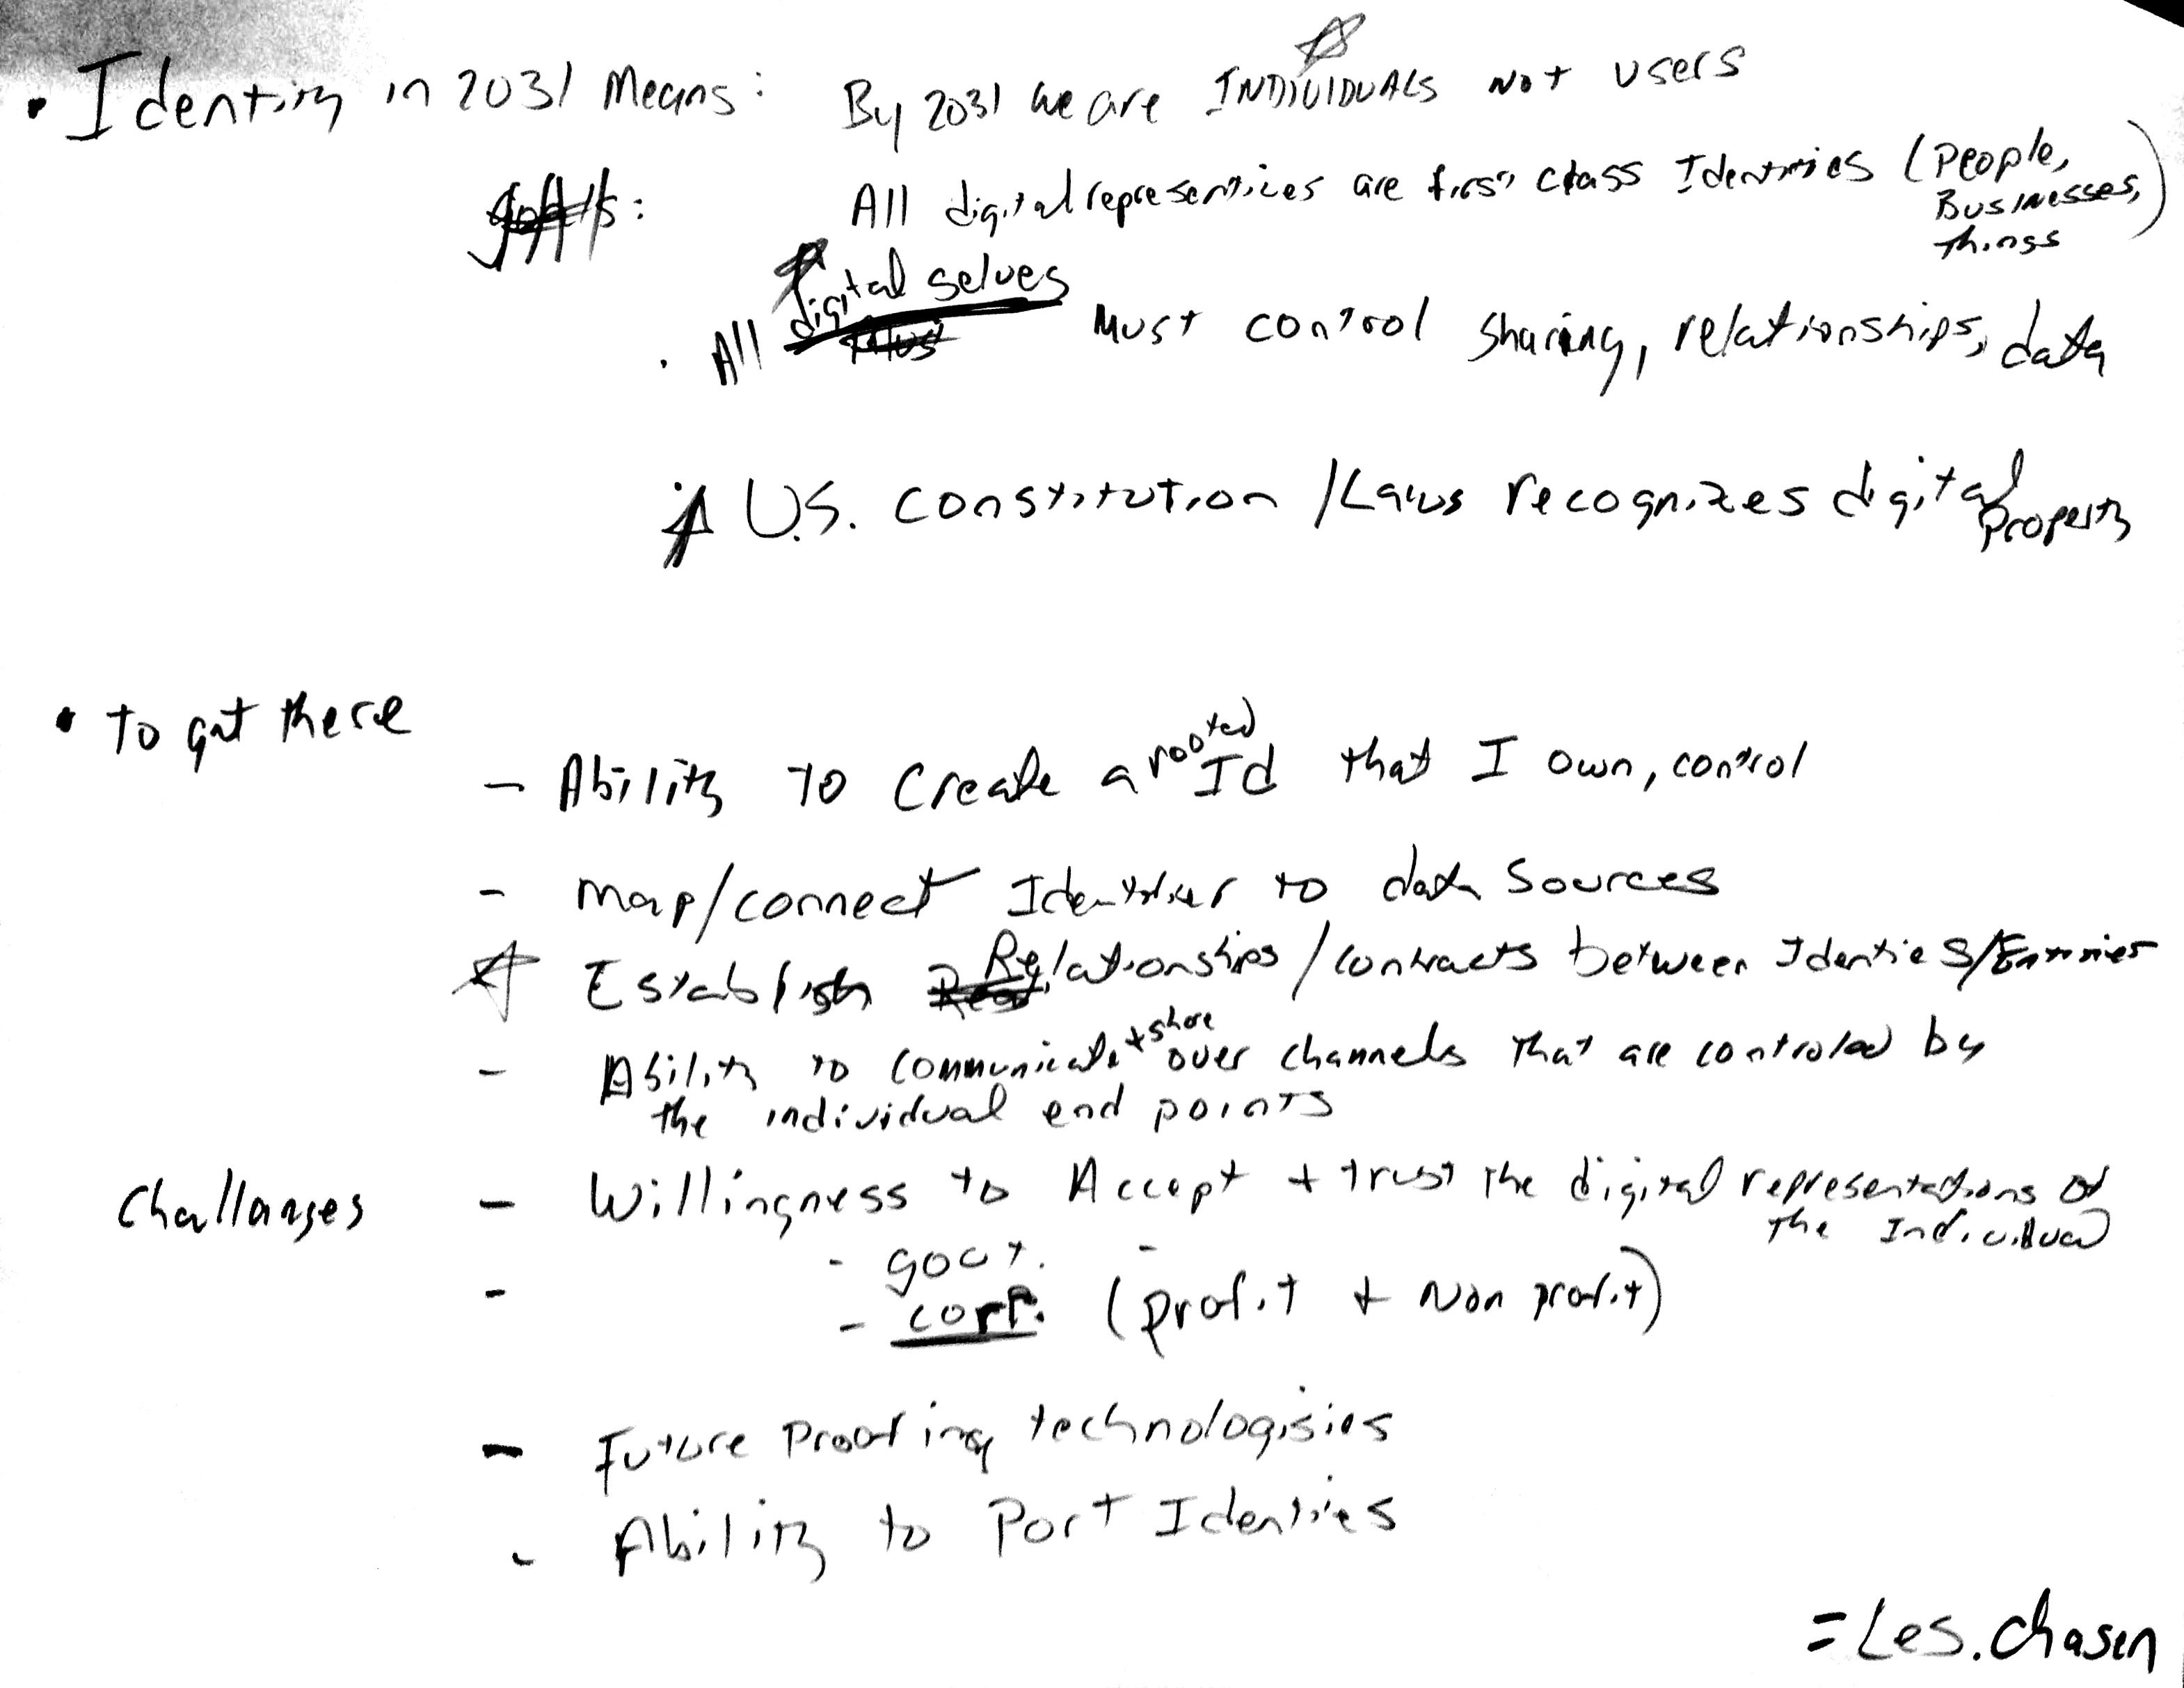 • Identity in 2031 Means: By 2031 we are INDIVIDUALS not users
All digital representives are first class Identities (People,
Businesses,
Things)
• All digital selves Must control sharing, relationships, data
☆ U.S. Constitution / Laws recognizes digital property
• to get there
- Ability to create a rooted Id that I own, control
- map/connect Identifier to data sources
☆ Establish Relationships / contracts between Identies/Entities
- Ability to communicate + share over channels that are controled by
the individual end points
Challanges - Willingness to Accept + trust the digital representations of
the Individual
- govt.
- corp. (profit + Non profit)
- Future Proofing technologisies
- Ability to Port Identies
=Les.Chasen